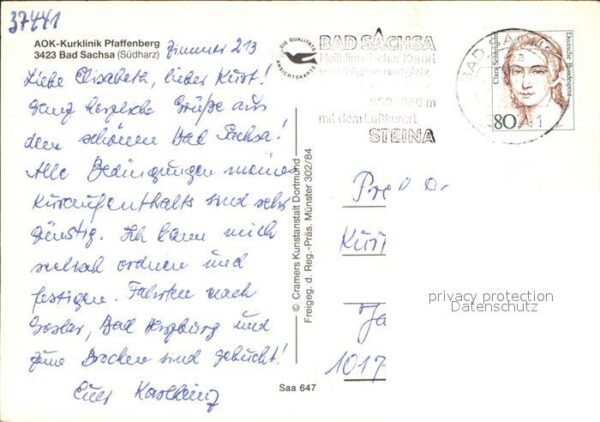 37441
AOK-Kurklinik Pfaffenberg
3423 Bad Sachsa (Südharz)
Zimmer 213
Liebe Elisabeth, lieber Kurt!
Ganz herzliche Grüße aus
dem schönen Bad Sachsa!
Alle Bedingungen meines
Kuraufenthalts sind sehr
günstig. Ich kann mich
seelisch ordnen und
festigen. Fahrten nach
Goslar, Bad Harzburg und
zum Brocken sind gebucht!
Euer Karlheinz
DIE QUALITÄTS
ANSICHTSKARTE
BAD SACHSA
Heilklimatischer Kurort
und Wintersportplatz
m
mit dem Luftkurort
STEINA
BAD
Clara Schumann
Deutsche Bundespost
80
© Cramers Kunstanstalt Dortmund
Freigeg. d. Reg.-Präs. Münster 302/84
Kurt
1017
privacy protection
Datenschutz
Saa 647